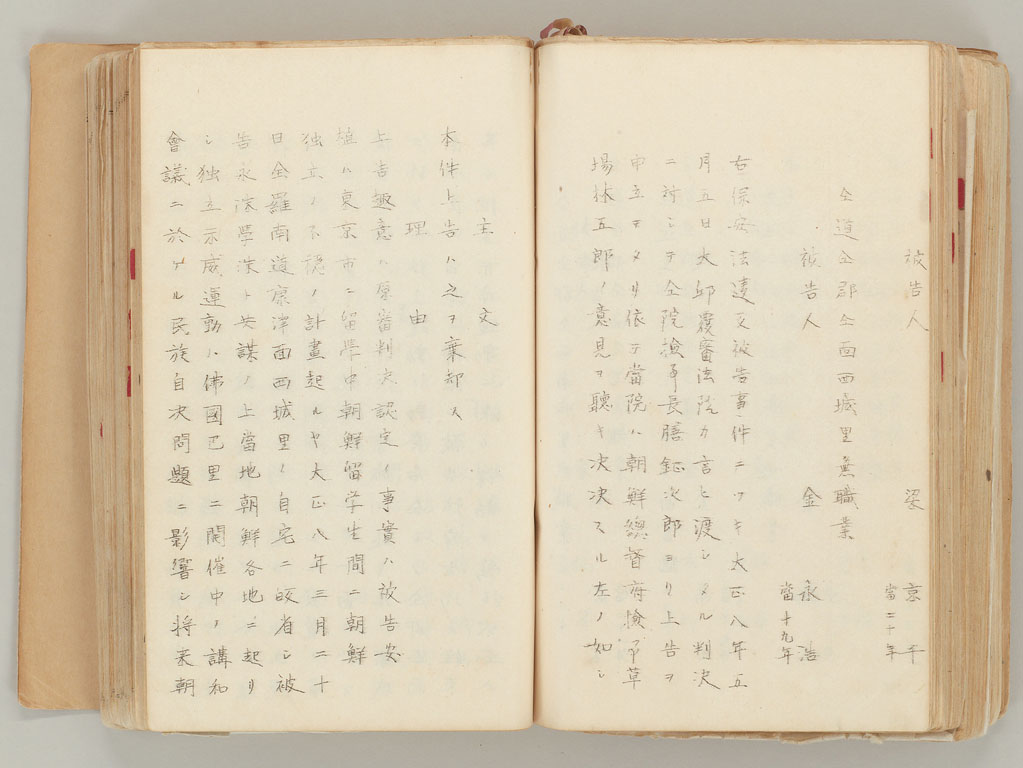 被告人 梁京千
當二十年
仝道仝郡仝面西城里無職業
被告人 金永浩
當十九年
右保安法違反被告事件ニツキ大正八年五
月五日大邱覆審法院カ言ヒ渡シタル判決
ニ対シテ仝院検事長膳鉦次郎ヨリ上告ヲ
申立テタリ依テ當院ハ朝鮮總督府検事草
場林五郎ノ意見ヲ聴キ決決スル左ノ如シ
主文
本件上告ハ之ヲ棄却ス
理由
上告趣意ハ原審判決認定ノ事實ハ被告安
ハ東京市ニ留學中朝鮮留学生間ニ朝鮮
独立ノ不穏ノ計畫起ルヤ大正八年三月二十
日全羅南道康津面西城里ノ自宅ニ皈省シ被
告永浩學洙ト共謀ノ上當地朝鮮各地ニ起リ
シ独立示威運動ハ佛國巴里ニ開催中ノ講和
會議ニ於ケル民族自決問題ニ影響シ将来朝